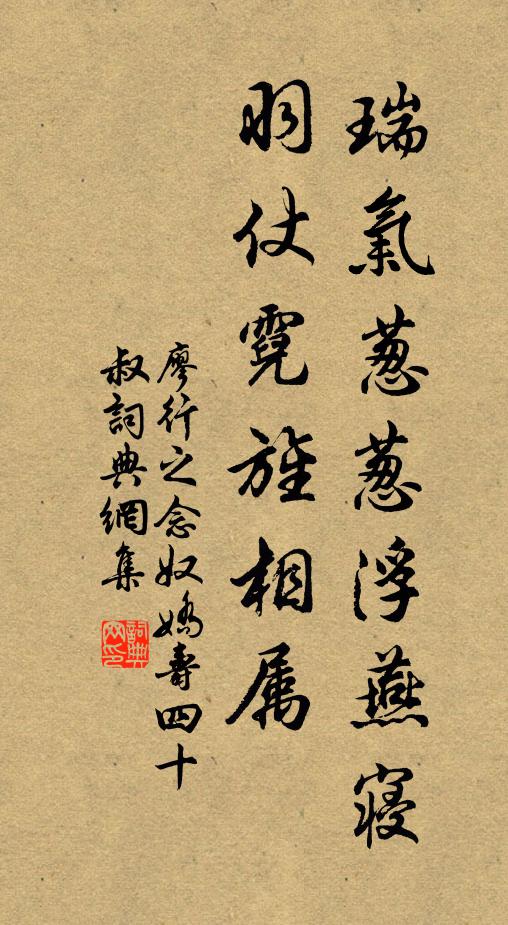 瑞氣葱葱浮燕寢
羽仗霓旌相属
廖行之念奴嬌壽四十
叔詞典網集
詞典網印